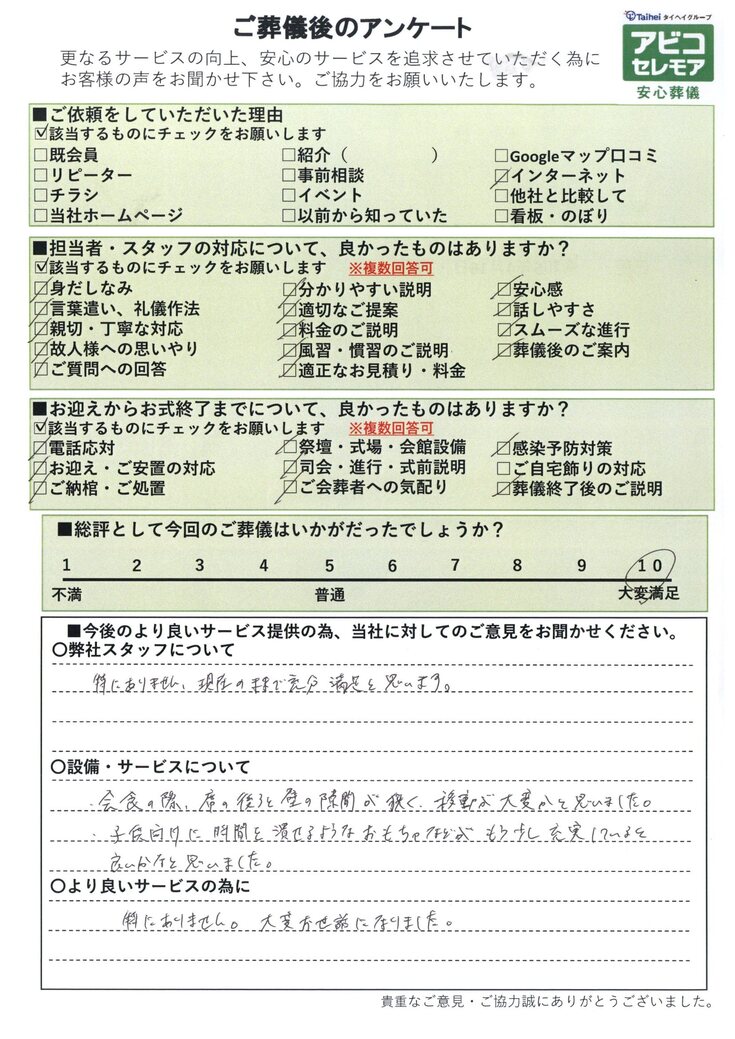 ご葬儀後のアンケート
Taihei タイヘイグループ
アビコ
セレモア
安心葬儀
更なるサービスの向上、安心のサービスを追求させていただく為に
お客様の声をお聞かせ下さい。ご協力をお願いいたします。
■ご依頼をしていただいた理由
☑該当するものにチェックをお願いします
□既会員 □紹介（ ） □Googleマップ口コミ
□リピーター □事前相談 ☑インターネット
□チラシ □イベント □他社と比較して
□当社ホームページ □以前から知っていた □看板・のぼり
■担当者・スタッフの対応について、良かったものはありますか？
☑該当するものにチェックをお願いします ※複数回答可
☑身だしなみ ☑分かりやすい説明 ☑安心感
☑言葉遣い、礼儀作法 ☑適切なご提案 ☑話しやすさ
☑親切・丁寧な対応 ☑料金のご説明 ☑スムーズな進行
☑故人様への思いやり ☑風習・慣習のご説明 ☑葬儀後のご案内
☑ご質問への回答 ☑適正なお見積り・料金
■お迎えからお式終了までについて、良かったものはありますか？
☑該当するものにチェックをお願いします ※複数回答可
☑電話応対 ☑祭壇・式場・会館設備 ☑感染予防対策
☑お迎え・ご安置の対応 ☑司会・進行・式前説明 □ご自宅飾りの対応
☑ご納棺・ご処置 ☑ご会葬者への気配り ☑葬儀終了後のご説明
■総評として今回のご葬儀はいかがだったでしょうか？
1 2 3 4 5 6 7 8 9 10
不満 普通 大変満足
■今後のより良いサービス提供の為、当社に対してのご意見をお聞かせください。
〇弊社スタッフについて
特にありません、現在のままで充分 満足と思います。
〇設備・サービスについて
・会食の際、席の後ろと壁の隙間が狭く、移動が大変かと思いました。
・子供向けに時間を潰せるようなおもちゃなどが もう少し充実していると
良いかなと思いました。
〇より良いサービスの為に
特にありません。大変お世話になりました。
貴重なご意見・ご協力誠にありがとうございました。